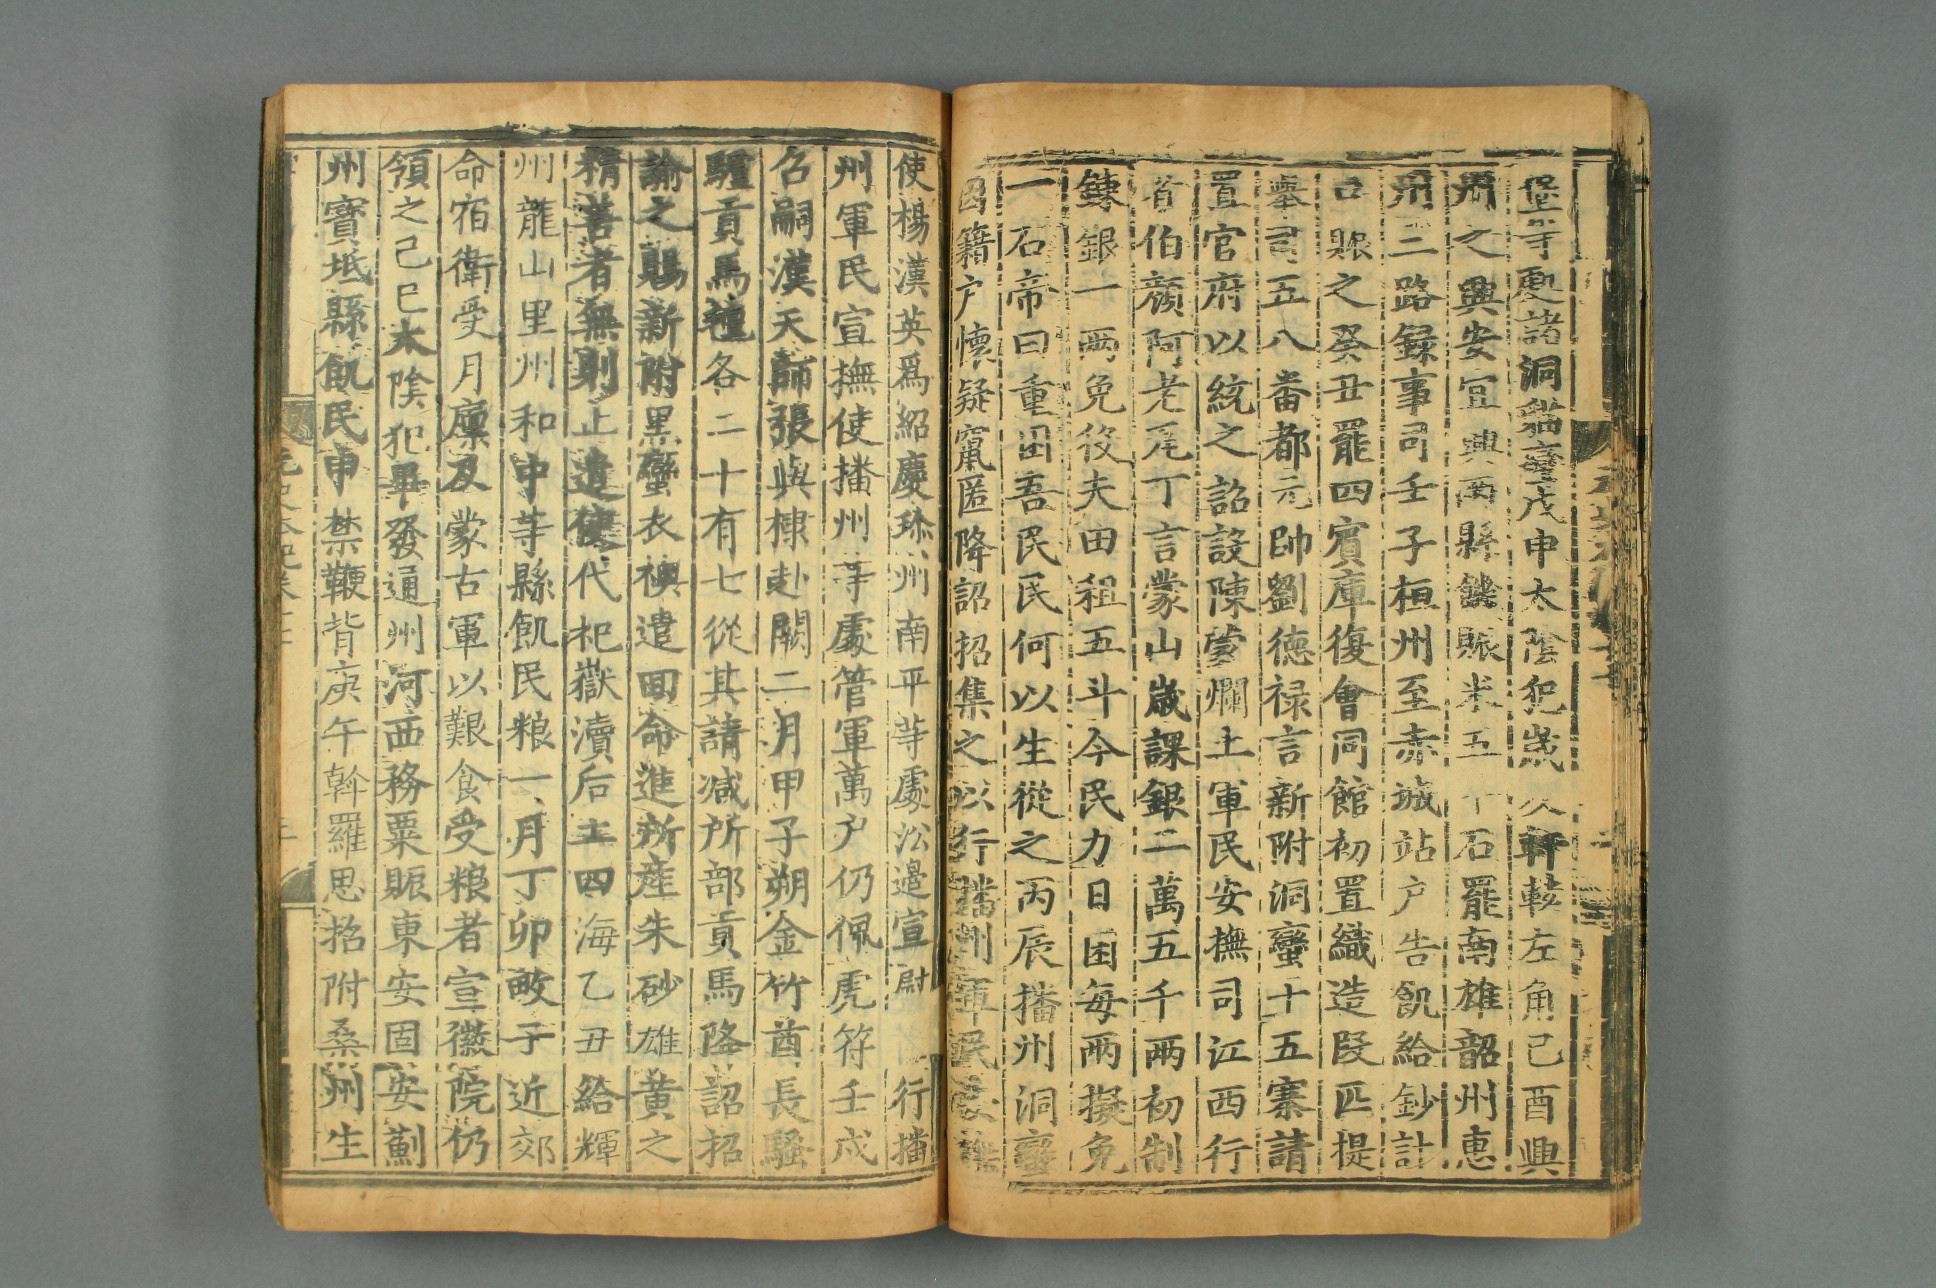 堡寺處諸洞猫蠻戊申太陰犯歲又犯軒轅左角己酉興
州之興安宜興兩縣饑賑米五千石罷南雄韶州惠
州三路録事司壬子桓州至赤城站户告飢給鈔計
口賑之癸丑罷四賓庫復會同館初置織造段匹提
舉司五八番都元帥劉德禄言新附洞蠻十五寨請
置官府以統之詔設陳蒙爛土軍民安撫司江西行
省伯顔阿老尾丁言蒙山歲課銀二萬五千兩初制
鍊銀一兩免役夫田租五斗今民力日困每兩擬免
一石帝曰重困吾民民何以生從之丙辰播州洞蠻
因籍户懷疑竄匿降詔招集之以行播州軍民安撫
使楊漢英爲紹慶珍州南平等處沿邉宣慰 行播
州軍民宣撫使播州等處管軍萬户仍佩虎符壬戌
召嗣漢天師張與棣赴闕二月甲子朔金竹酋長騷
驢貢馬氊各二十有七從其請減所部貢馬降詔招
諭之賜新附黒蠻衣襖遣回命進所産朱砂雄黄之
精善者無則止遣使代祀嶽瀆后土四海乙丑給輝
州龍山里州和中等縣飢民粮一月丁卯畋于近郊
命宿衛受月廪及蒙古軍以艱食受粮者宣徽院仍
領之己巳太陰犯畢發通州河西務粟賑東安固安薊
州寳坻縣飢民申禁鞭背庚午斡羅思招附桑州生
元史本紀卷十七